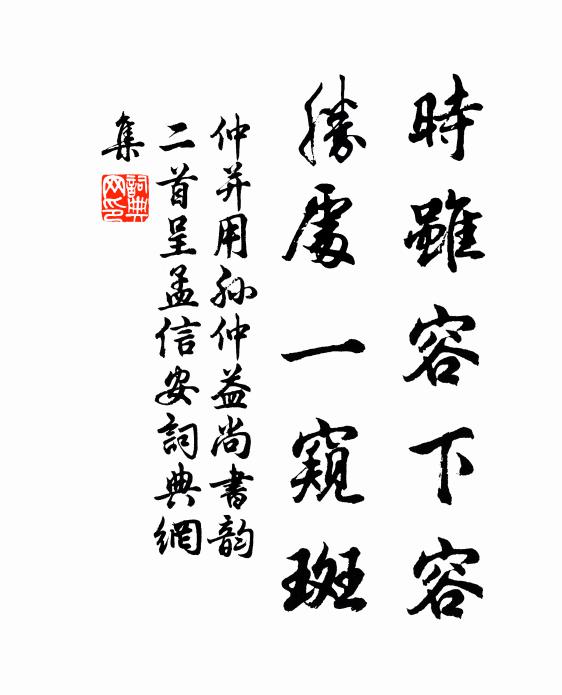 時雖容下容
勝處一窺斑
仲并用孙仲益尚書韵
二首呈孟信安詞典網
集
詞典
网印